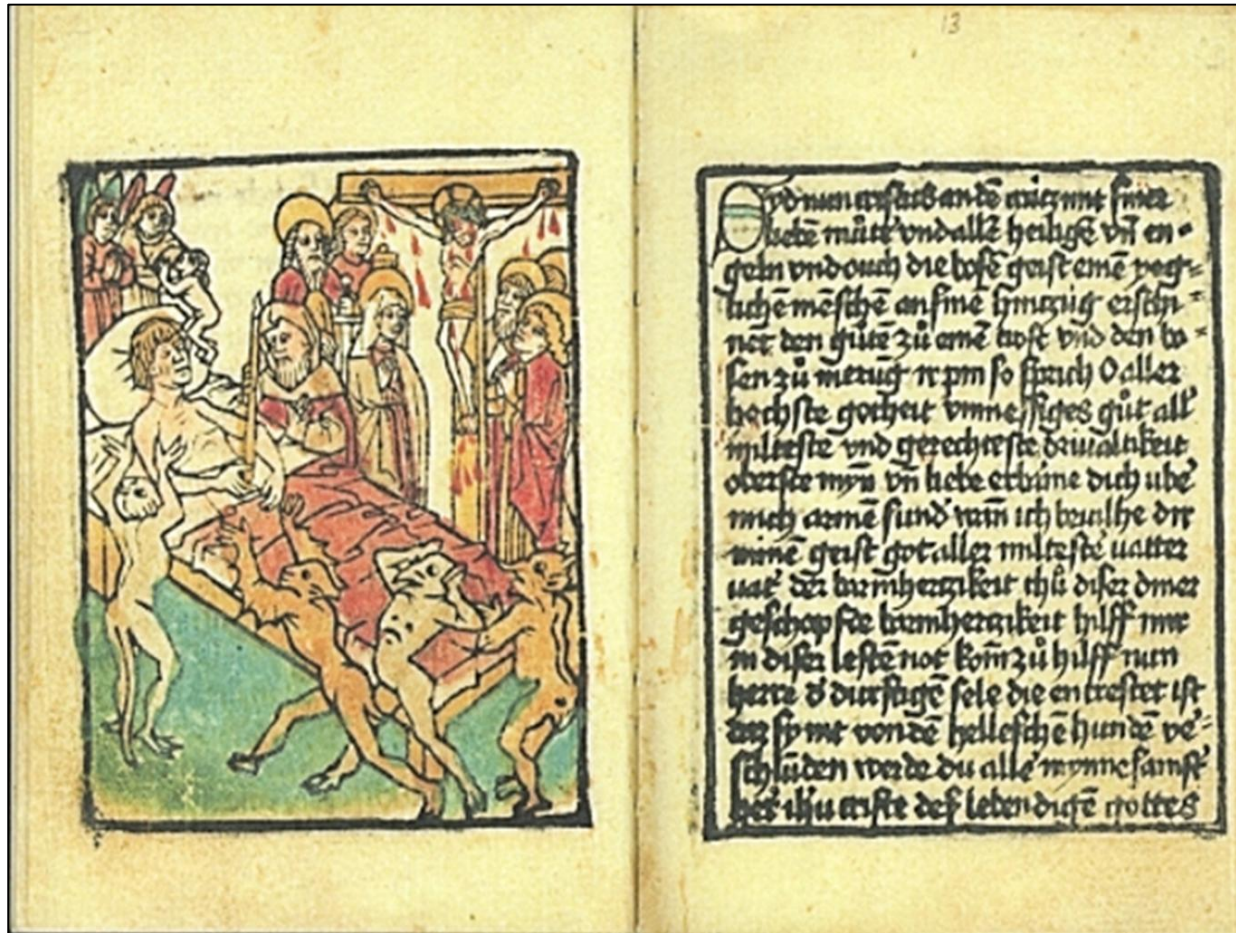 13
ſyd nun criſtus an dē crütz mit ſiner
liebē můter vnd allē heiligē vn̄ en-
geln vnd ouch die boſen geiſt einē yeg-
lichē mēſchē an ſine hinzug erſchi-
net den gůtē zů einē troſt vnd den bo-
ſen zů ſo ſprich O aller
hechſte gotheit vnmeſſiges gůt all'
milteſte vnd gerechteſte driualtikeit
oberſte myn vn̄ liebe erbarme dich ube'
mich armē ſund' wān ich beuilhe dir
minē geiſt got aller milteſte' vatter
vat' der barmhertzikeit thů diſer diner
geſchopfte barmhertzikeit hilff mir
in diſer leſtē not kom̄ zů hilff nun
herre d' durſtigē ſele die en treſtet iſt
dz ſy nit von dē helleſchē hunden ve'-
ſchlunden werde du alle' mynneſamſt
her ihū criſte deſ lebendigē gottes